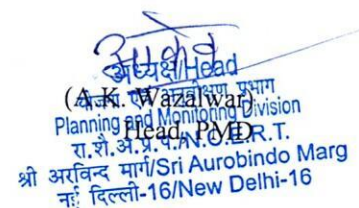 अध्यक्ष/Head
(A.K. Wazalwar)
योजना एवं अनुवीक्षण प्रभाग
Planning and Monitoring Division
Head, PMD
रा.शै.अ.प्र.प./N.C.E.R.T.
श्री अरविन्द मार्ग/Sri Aurobindo Marg
नई दिल्ली-16/New Delhi-16